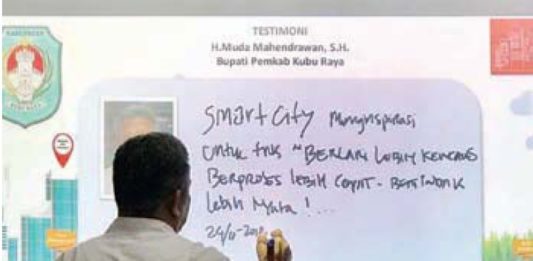 TESTIMONI
H.Muda Mahendrawan, S.H.
Bupati Pemkab Kubu Raya
KABUPATEN
KUBU RAYA
Smart City Menginspirasi
untuk trus "BERLARI LEBIH KENCANG
BERPROSES lebih CEPAT - BERTINDAK
lebih Nyata ! ...